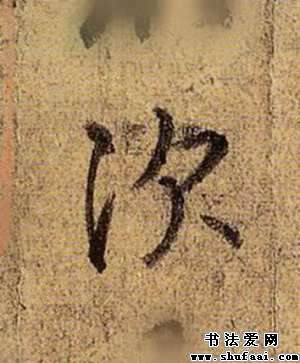 次
书法爱网
www.shufaai.com